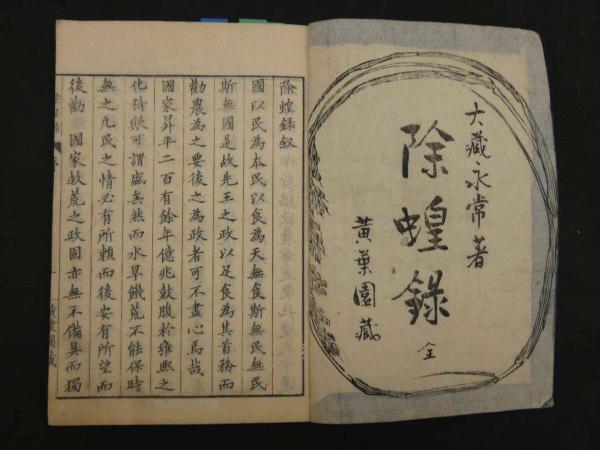 大藏永常著
除蝗錄 全
黃葉園藏
除蝗錄叙
國以民為本民以食為天無食斯無民無民
斯無國是故先王之政以足食為其首務而
勸農為之要後之為政者可不盡心焉哉
國家昇平二百有餘年億兆鼓腹於雍熙之
化猗歟可謂盛矣然而水旱饑荒不能保時
無之凢民之情必有所賴而後安有所望而
後勸 國家救荒之政固亦無不備具而獨